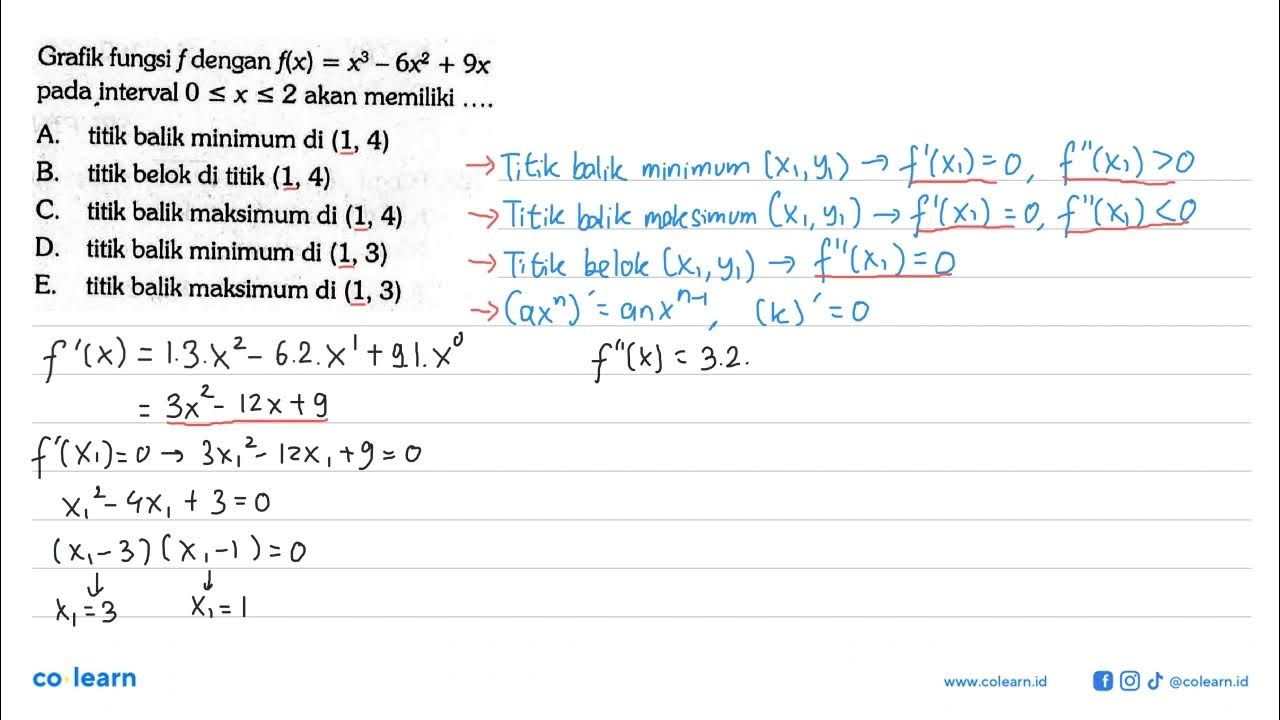 Grafik fungsi f dengan f(x) = x³ – 6x² + 9x
pada interval 0 ≤ x ≤ 2 akan memiliki ....
A. titik balik minimum di (1, 4)
B. titik belok di titik (1, 4)
C. titik balik maksimum di (1, 4)
D. titik balik minimum di (1, 3)
E. titik balik maksimum di (1, 3)
→ Titik balik minimum (x₁, y₁) → f'(x₁) = 0, f"(x₁) > 0
→ Titik balik maksimum (x₁, y₁) → f'(x₁) = 0, f"(x₁) < 0
→ Titik belok (x₁, y₁) → f"(x₁) = 0
→ (axⁿ)' = anxⁿ⁻¹, (k)' = 0
f'(x) = 1.3.x² – 6.2.x¹ + 91.x⁰
= 3x² – 12x + 9
f'(x₁) = 0 → 3x₁² – 12x₁ + 9 = 0
x₁² – 4x₁ + 3 = 0
(x₁ – 3)(x₁ – 1) = 0
↓ ↓
x₁ = 3 x₁ = 1
f"(x) = 3.2.
co learn
www.colearn.id
@colearn.id